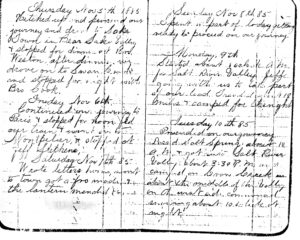 Thursday Nov 5th 1885
Hitched up and pursued our
journey and drove to
Round, near Bear Lake Valley
& stopped for dinner at Bro.
Weston, after dinner we
drove on to Swan Creek
and stopped for night with
Bro Cook.
Friday Nov 6th
Continued our journey to
Paris & stopped for noon, fed
our team & went on to
Montpelier & stopped at
Saturday Nov 7th 85
Wrote letters home, went
to town got a fro made &
the lantern mended &
Sunday Nov 8th 85
Spent a part of today getting
ready to proceed on our journey
Monday, 9th
Started about 1 o'clock P.M.
for Salt River Valley, Jeff
going with us to take part
of our load. Traveled about 8
miles & camped for the night
Tuesday 10th 85
Proceeded on our journey
passed Salt Spring about 12
A.M. & got into Salt River
Valley about 3:30 P.M. and
camped on Crow Creek
about the middle of the Valley
on the west side, commenced
snowing about 10 o'clock at
night.